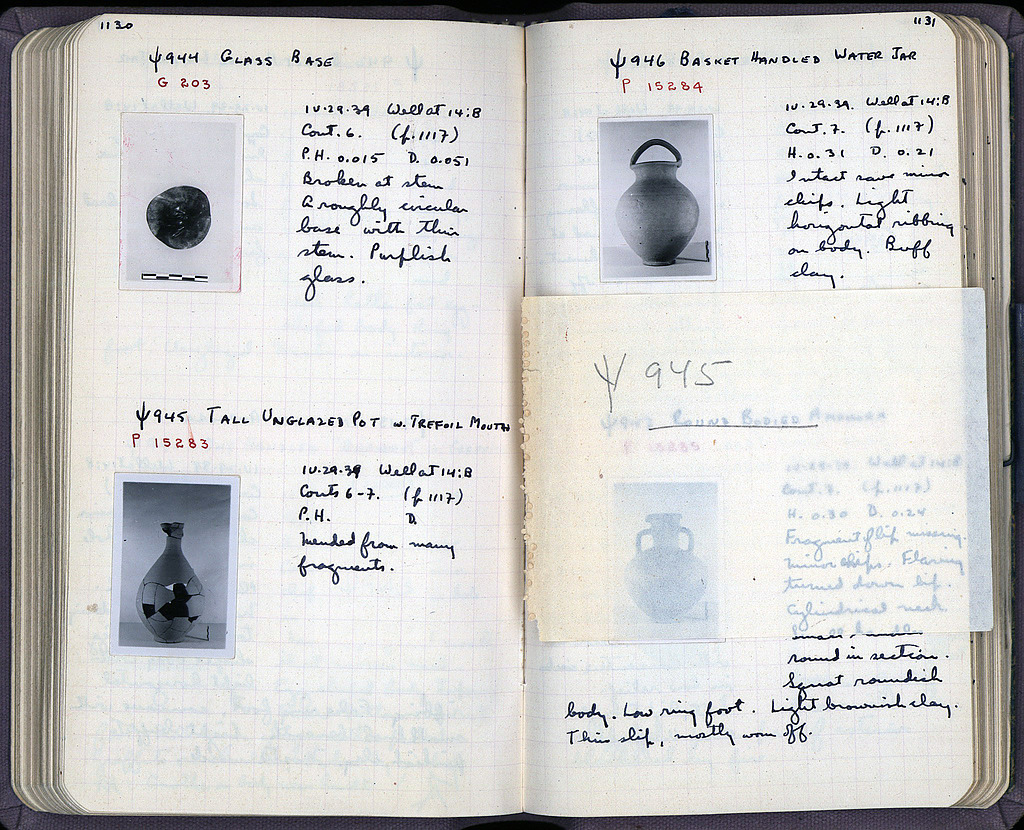 1130
Ψ944 GLASS BASE
G 203
IV.29.39 Well at 14:B
Cont. 6. (p. 1117)
P.H. 0.015 D. 0.051
Broken at stem
A roughly circular
base with thin
stem. Purplish
glass.
Ψ945 TALL UNGLAZED POT w. TREFOIL MOUTH
P 15283
IV.29.39 Well at 14:B
Conts 6-7. (p 1117)
P.H. D.
Mended from many
fragments.
1131
Ψ946 BASKET HANDLED WATER JAR
P 15284
IV.29.39. Well at 14:B
Cont. 7. (p. 1117)
H. 0.31 D. 0.21
Intact save minor
chips. Light
horizontal ribbing
on body. Buff
clay.
Ψ 945
ROUND BODIED AMPHORA
P 15285
IV.29.39 Well at 14:B
Cont. 7. (p. 1117)
H. 0.30 D. 0.24
Fragment of lip missing.
Minor chips. Flaring
turned down lip.
Cylindrical neck.
round in section.
Squat roundish
body. Low ring foot. Light brownish clay.
Thin slip, mostly worn off.